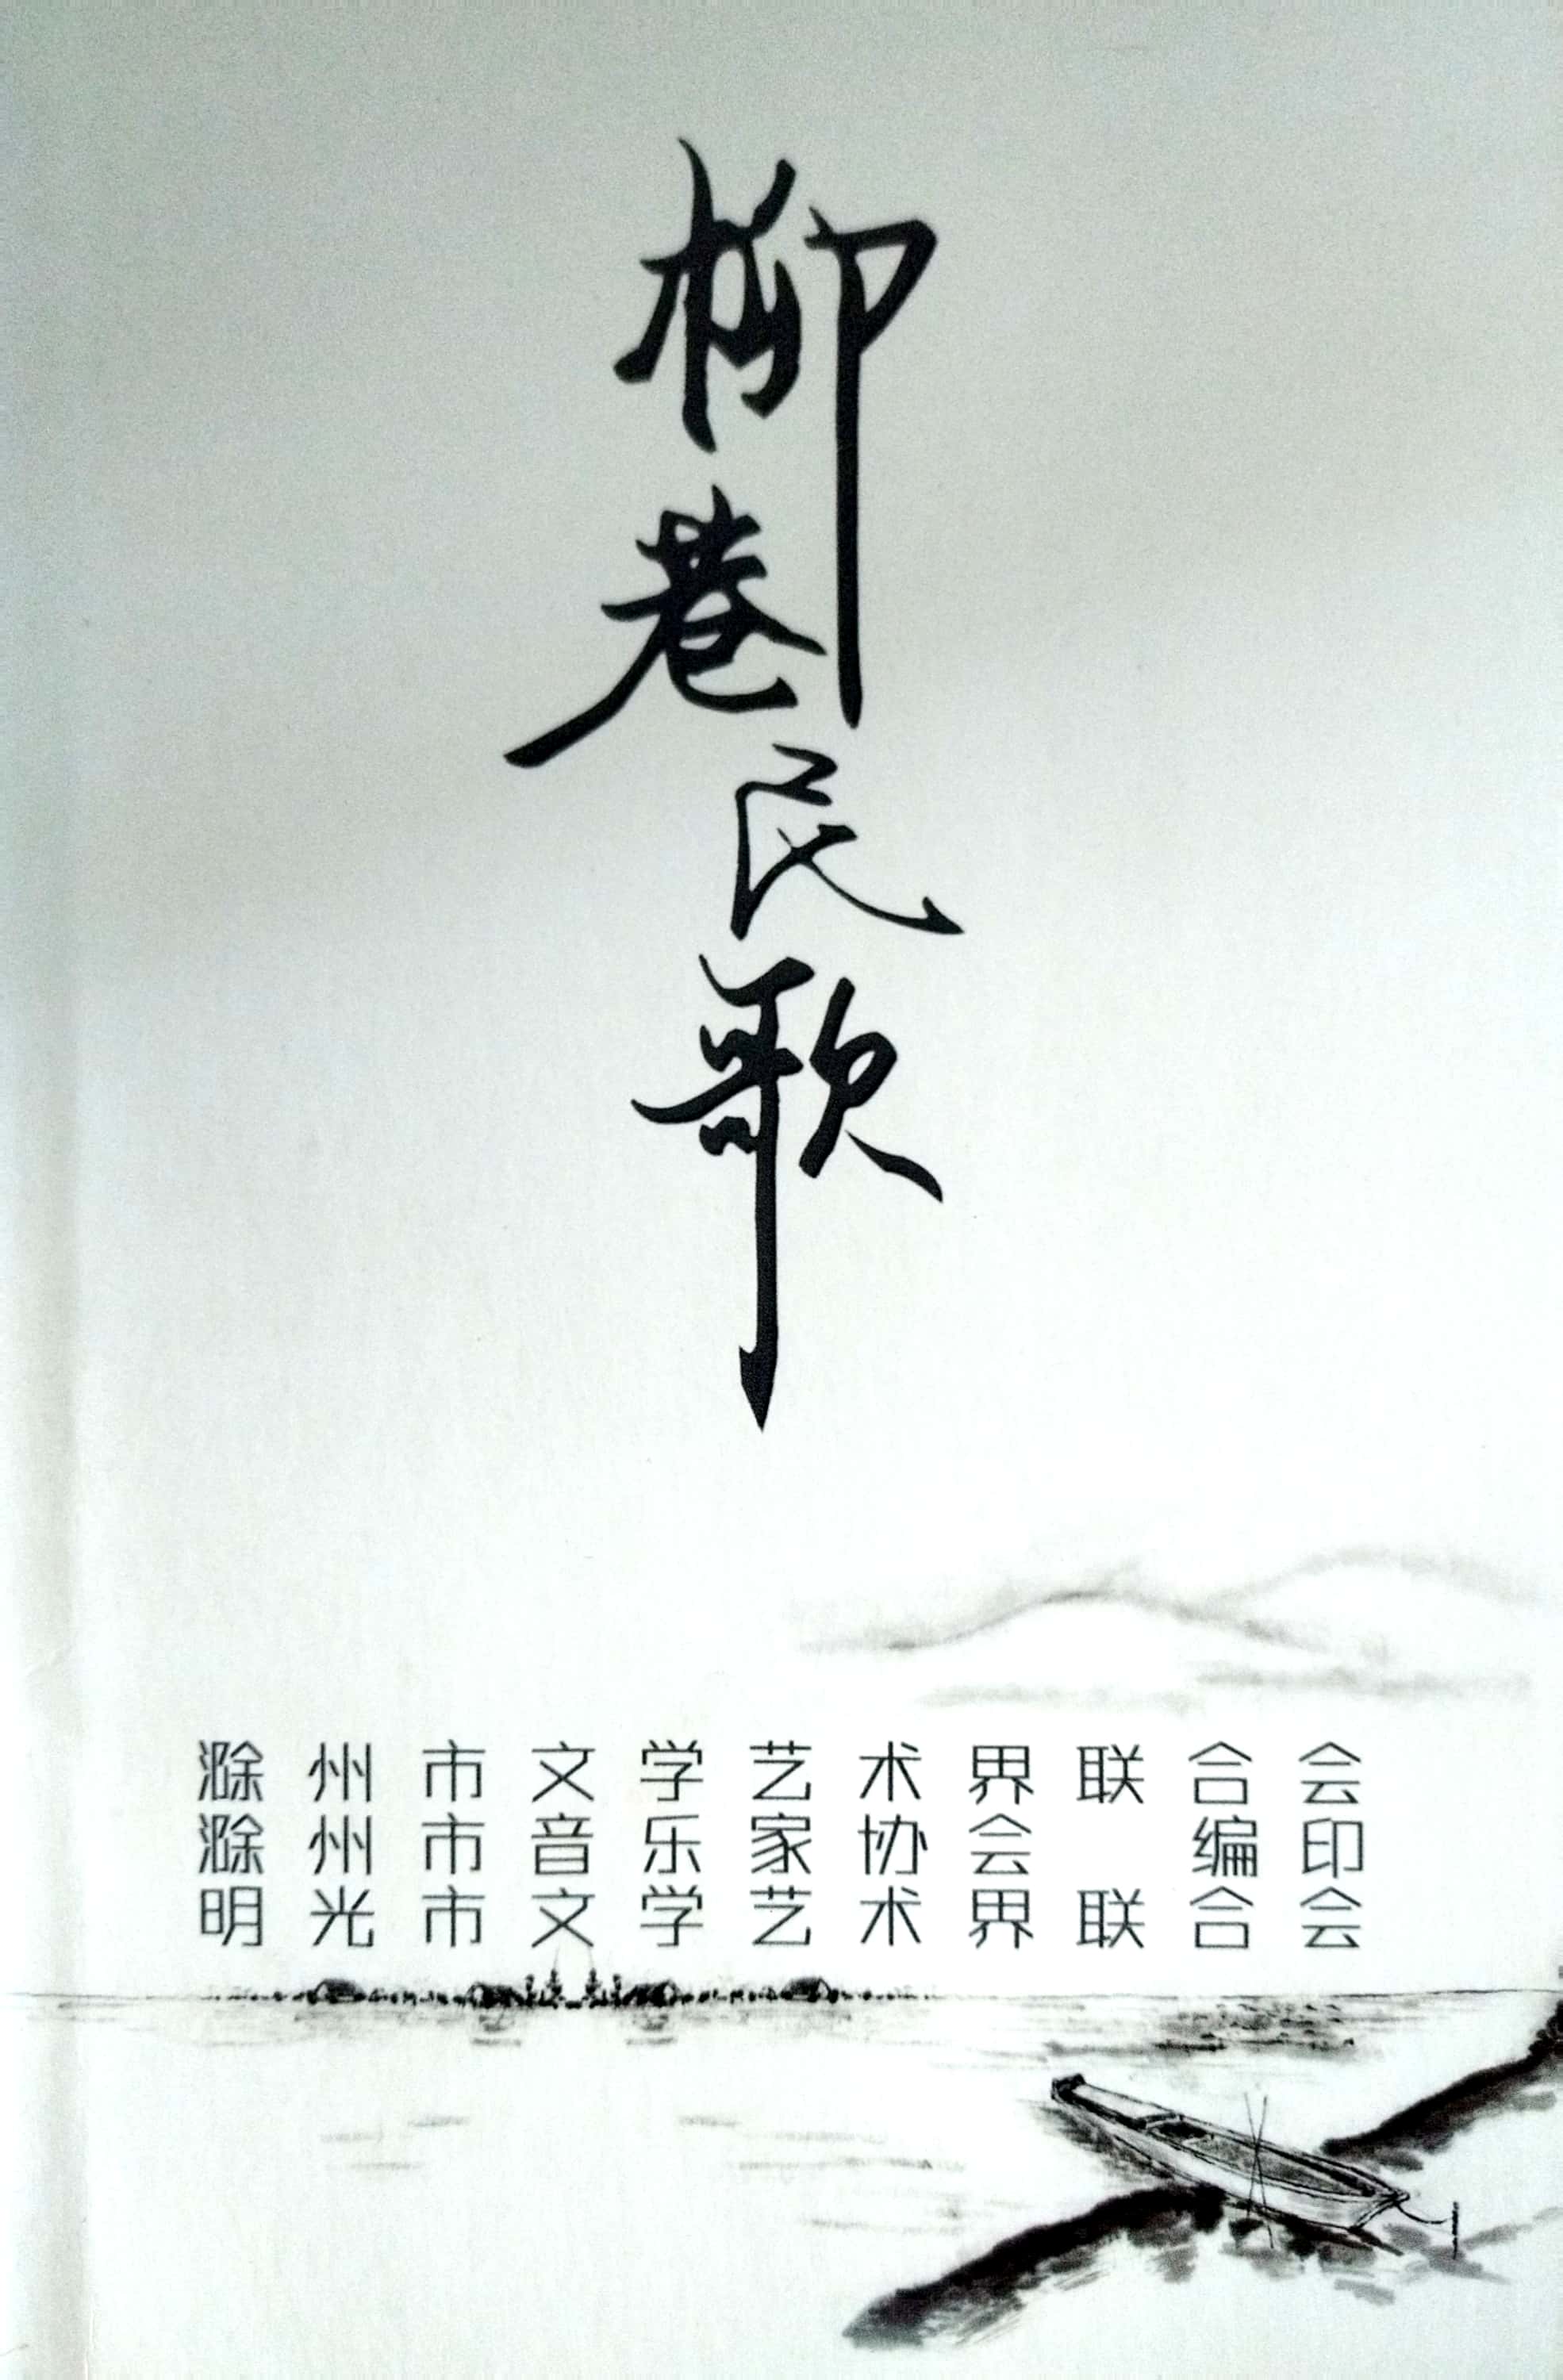 柳巷民歌
滁州市文学艺术界联合会
滁州市音乐家协会 编印
明光市文学艺术界联合会